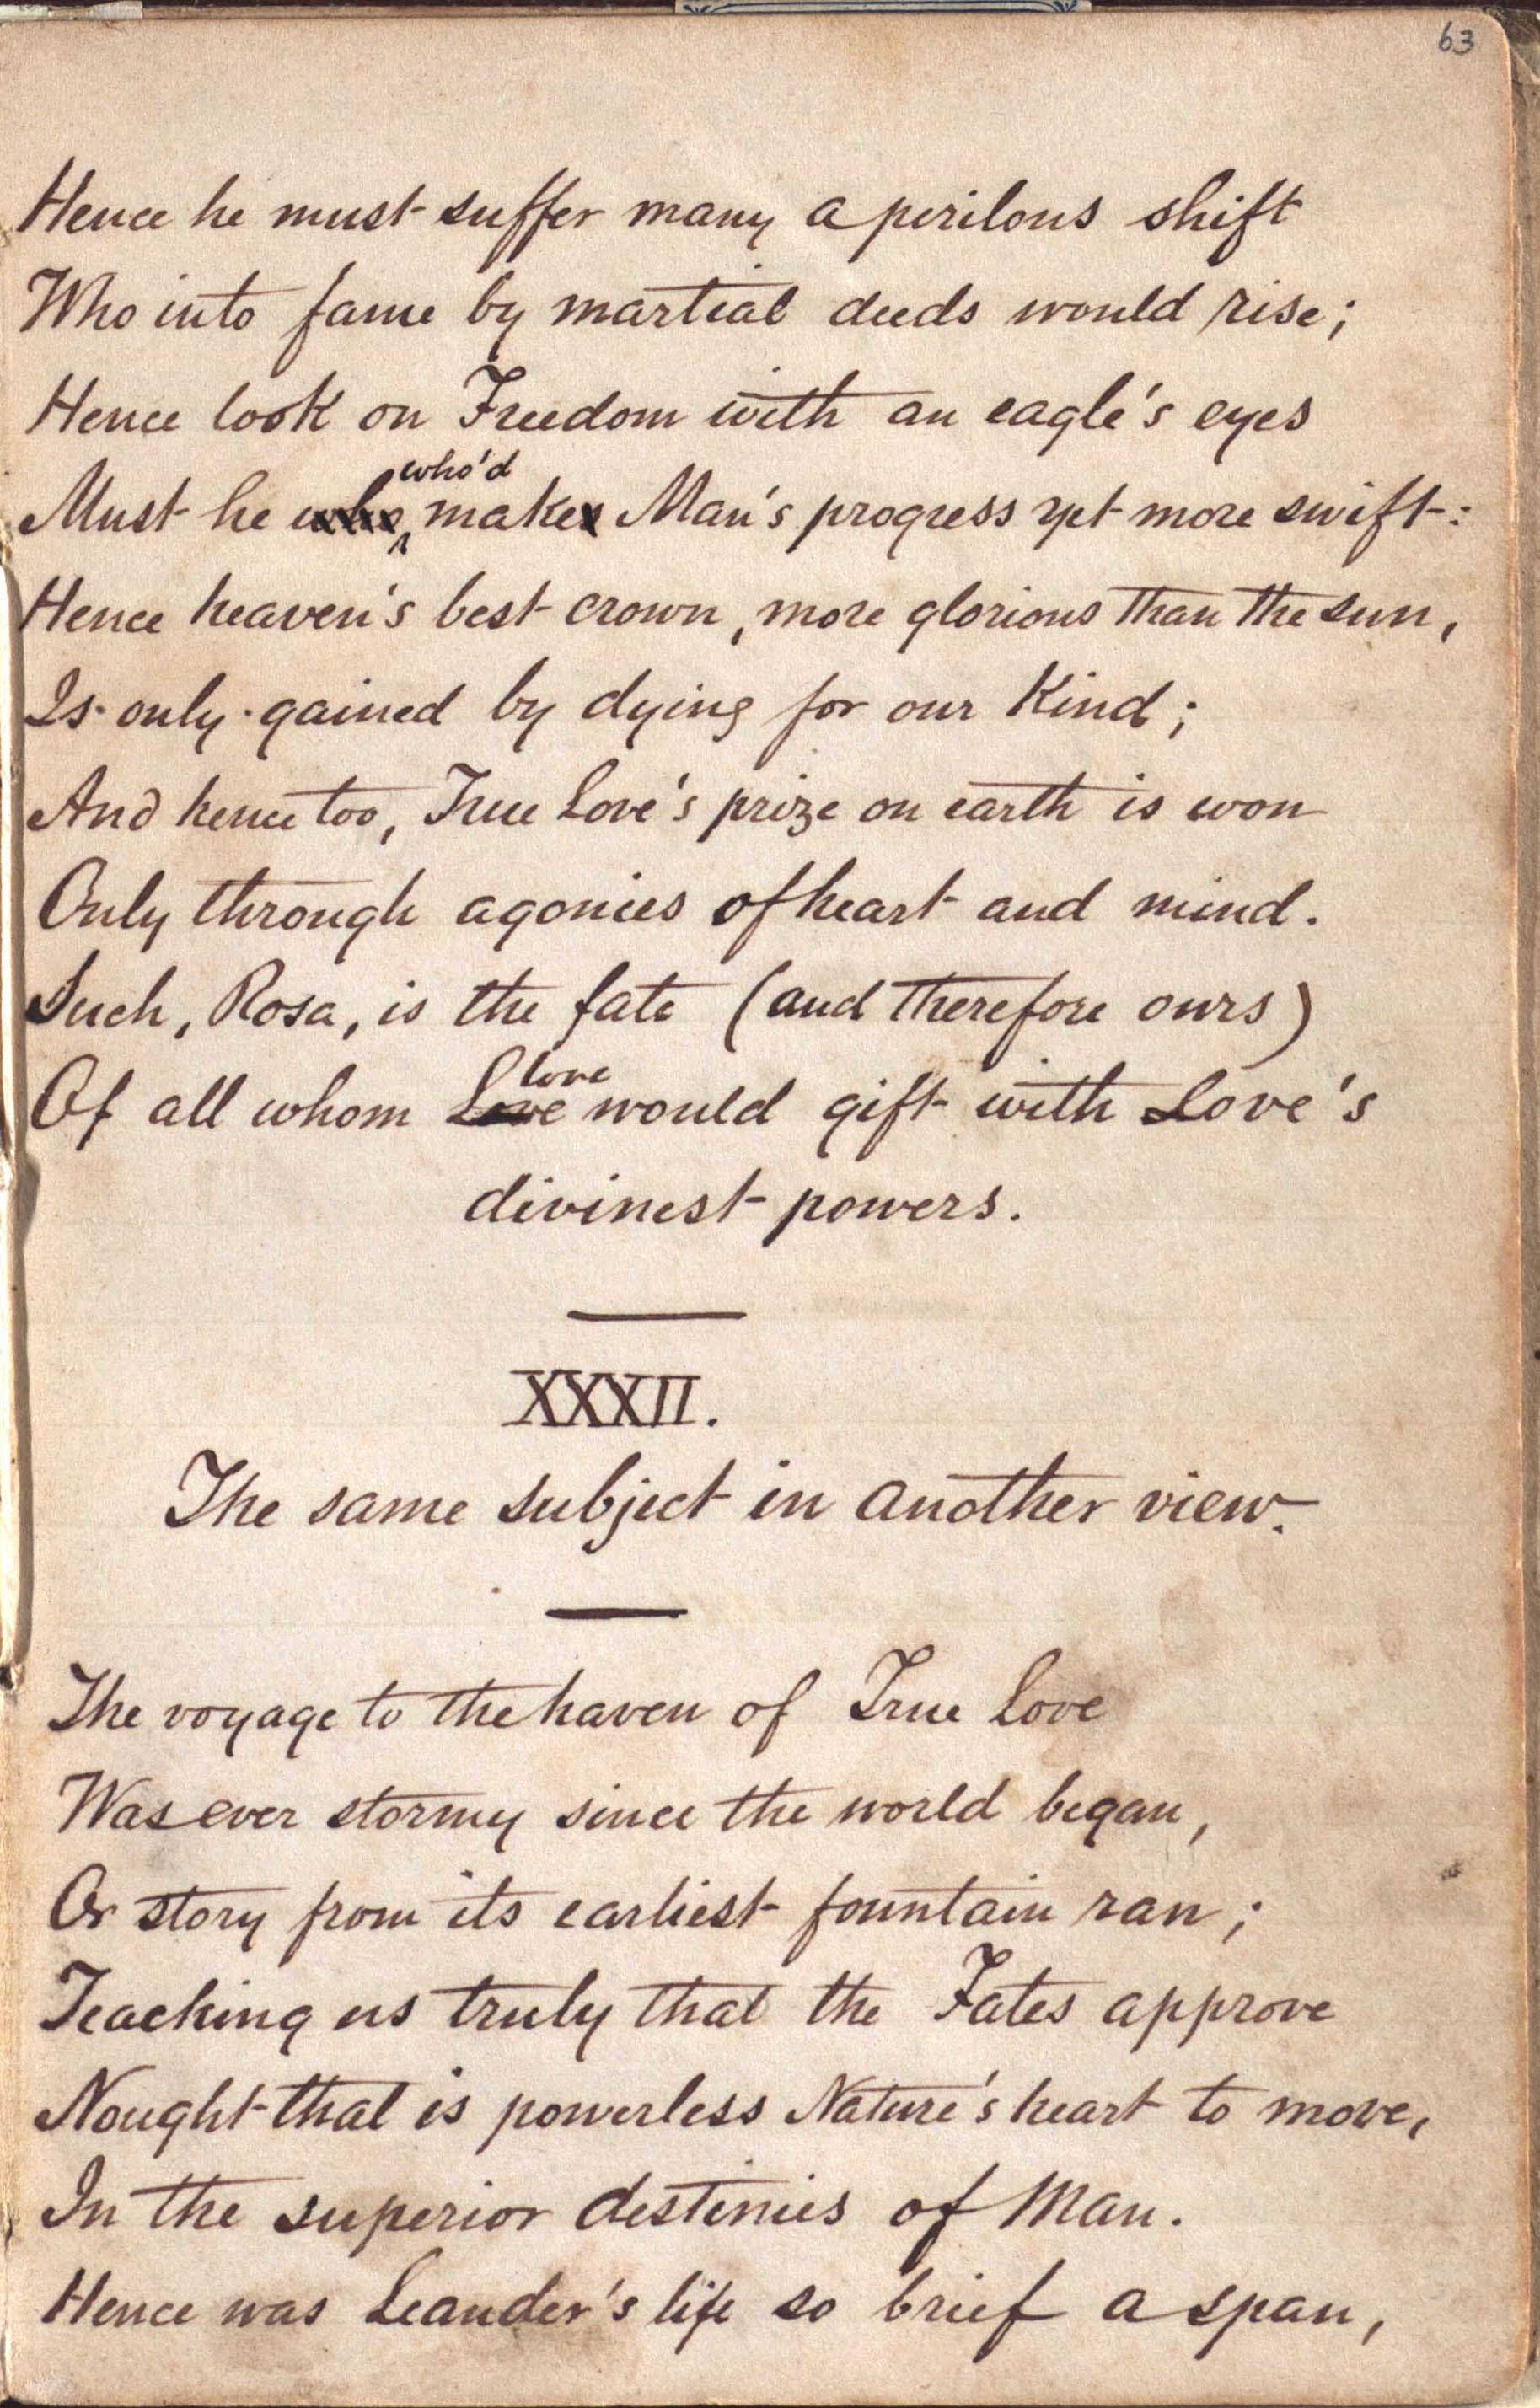 63
Hence he must suffer many a perilous shift
Who into fame by martial deeds would rise;
Hence look on Freedom with an eagle's eyes
Must he who'd make Man's progress yet more swift:
Hence heaven's best crown, more glorious than the sun,
Is only gained by dying for our Kind;
And hence too, True Love's prize on earth is won
Only through agonies of heart and mind.
Such, Rosa, is the fate (and therefore ours)
Of all whom love would gift with Love's
divinest powers.
XXXII.
The same subject in another view.
The voyage to the haven of True Love
Was ever stormy since the world began,
Or story from its earliest fountain ran;
Teaching us truly that the Fates approve
Nought that is powerless Nature's heart to move,
In the superior destinies of Man.
Hence was Leander's life so brief a span,